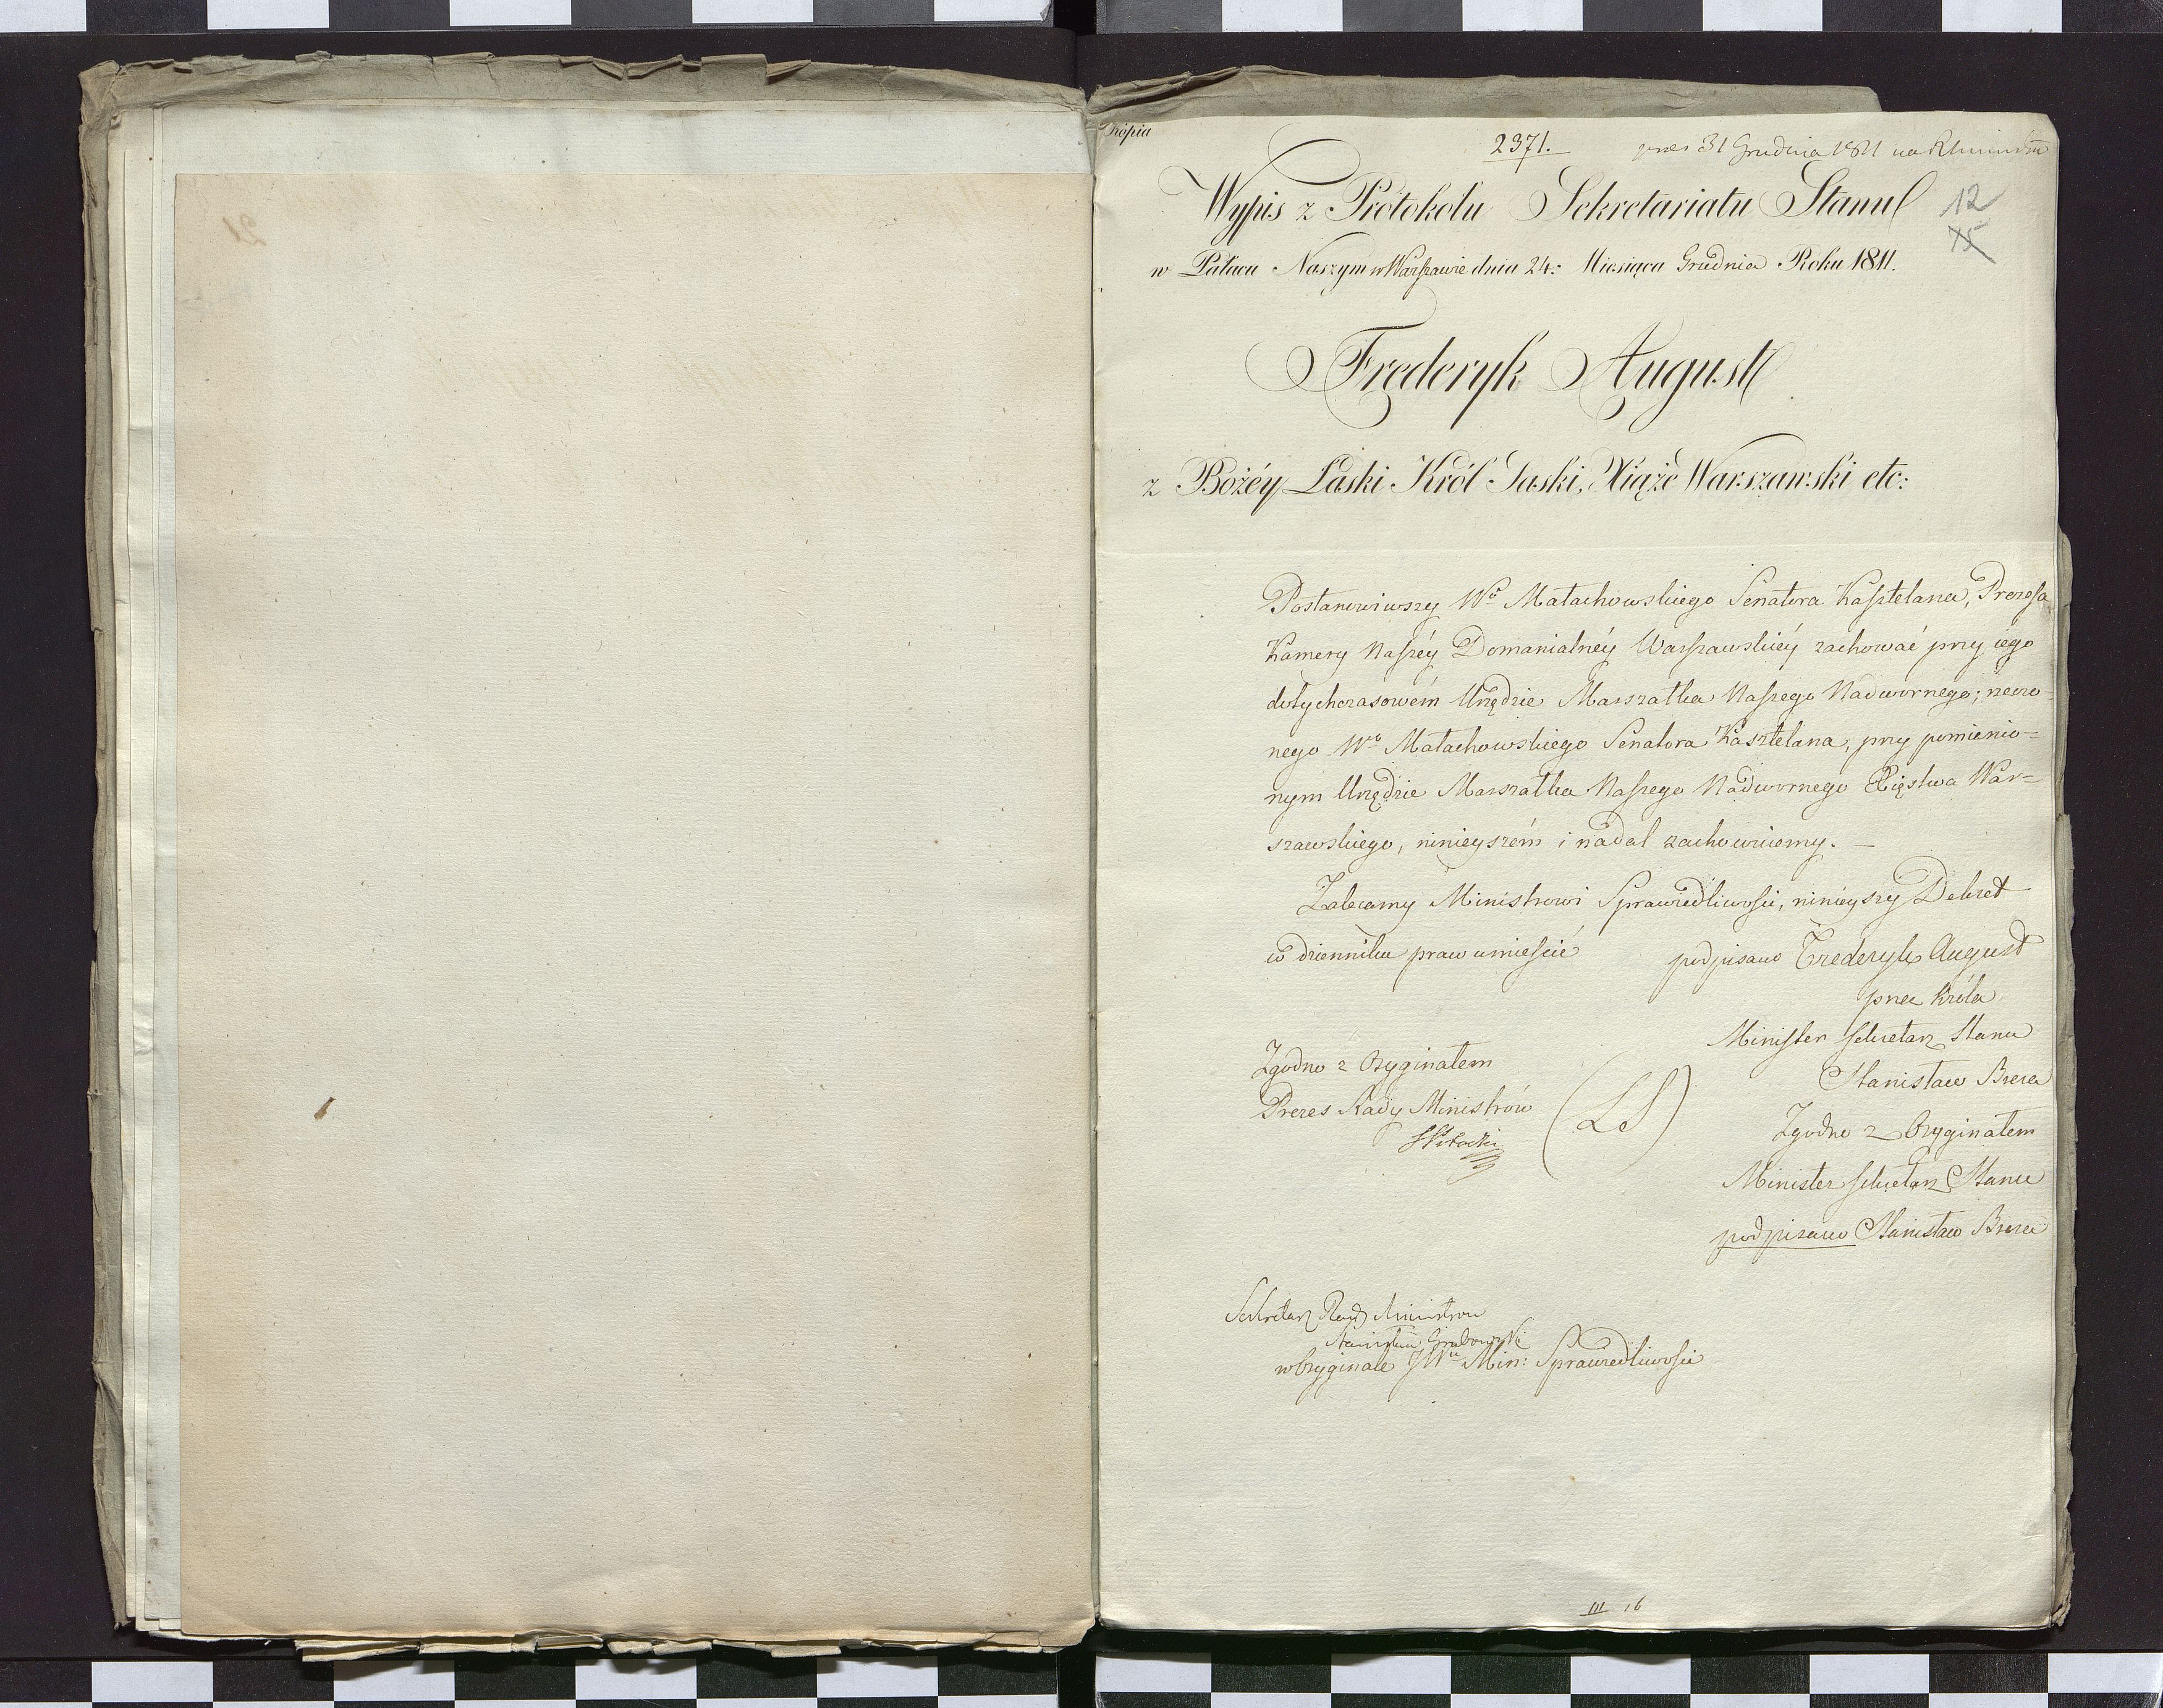 Kopia
2371.
pres 31 Grudnia 1811
Wypis z Protokołu Sekretariatu Stanu
12
15
w Pałacu Naszym w Warszawie dnia 24: Miesiąca Grudnia Roku 1811.
Frederyk August
z Bożéy Łaski Król Saski, Xiąże Warszawski etc:
Postanowiwszy Wo Małachowskiego Senatora Kasztelana, Prezesa
Kamery Naszéy Domanialnéy Warszawskiéy zachować przy iego
dotychczasowém Urzędzie Marszałka Naszego Nadwornego; rzeczo-
nego Wo Małachowskiego Senatora Kasztelana, przy pomienio=
nym Urzędzie Marszałka Naszego Nadwornego Xięstwa War=
szawskiego, ninieyszém i nadal zachowuiemy. —
Zalecamy Ministrowi Sprawiedliwości, ninieyszy Dekret
w dzienniku praw umieścić
podpisano Frederyk August
przez Króla
Minister Sekretarz Stanu
Stanisław Breza
Zgodno z Oryginałem
Prezes Rady Ministrów
SPotocki
(LS)
Zgodno z Oryginałem
Minister Sekretarz Stanu
podpisano Stanisław Breza
Sekretarz Rady Ministrów
Stanisław Grabowski
w Oryginale JWu Min: Sprawiedliwości
III 16